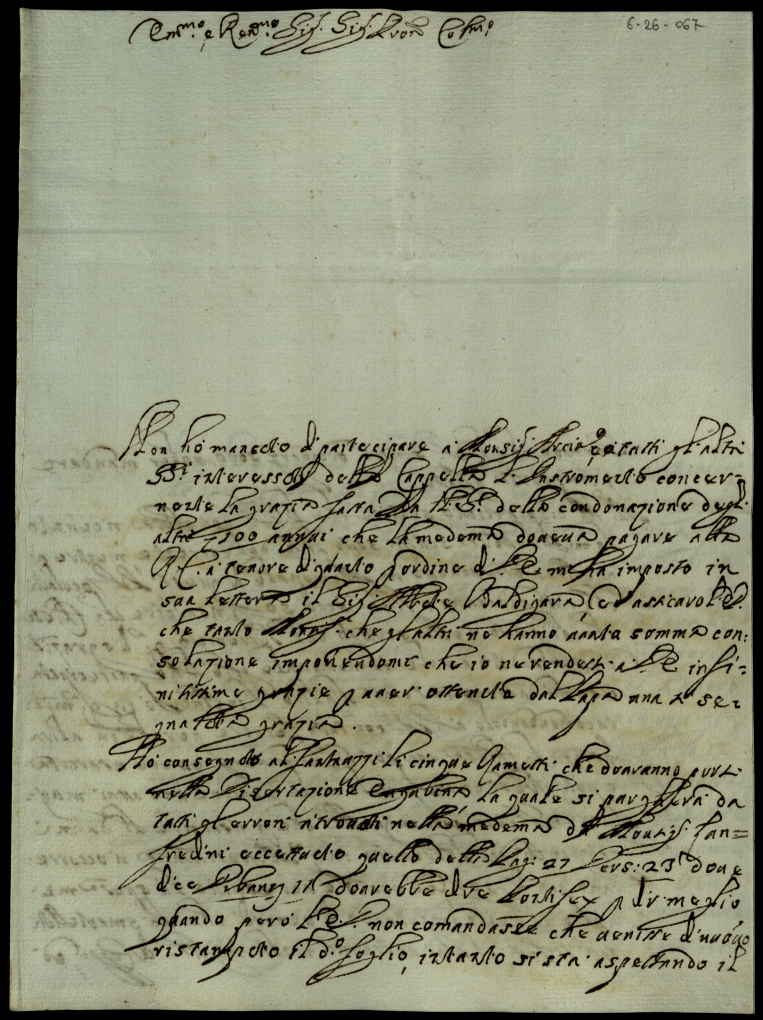 Em.mo e Rev.mo Sig. Sig. Pron Col.mo
6-26-067
Non hò mancato di partecipare a Monsig. Arcip.e e a tutti gl'altri
SS.ri interessati della Cappella l'Instromento concer-
nente la grazia fatta da N. S.re della condonazione degl'
altri 100 annui che la medema doveva pagare alla
R. C. a tenore di quanto p ordine di V. E. me ha imposto in
sua lettera il Sig. Abbate Baldigara, ed assicuro V. E.
che tanto Mons. che gl'altri ne hanno avuta somma con-
solazione imponendomi che io ne rendesti a V. E. infi-
nitissime grazie p aver ottenuta dal Papa una sì se-
gnalata grazia.
Hò consegnato al Fantauzzi li cinque Rametti che dovranno porsi
nella Disertazione Eugubina la quale si purgherà da
tutti gl'errori ritrovati nella medema da Monsig. Fan=
fredini eccettuato quello della Pag: 27 Vers: 23 dove
dice doverebbe dire Pontifex p dir meglio
quando però V. E. non comandasse che venisse di nuovo
ristampato il d.o foglio, intanto si sta aspettando il